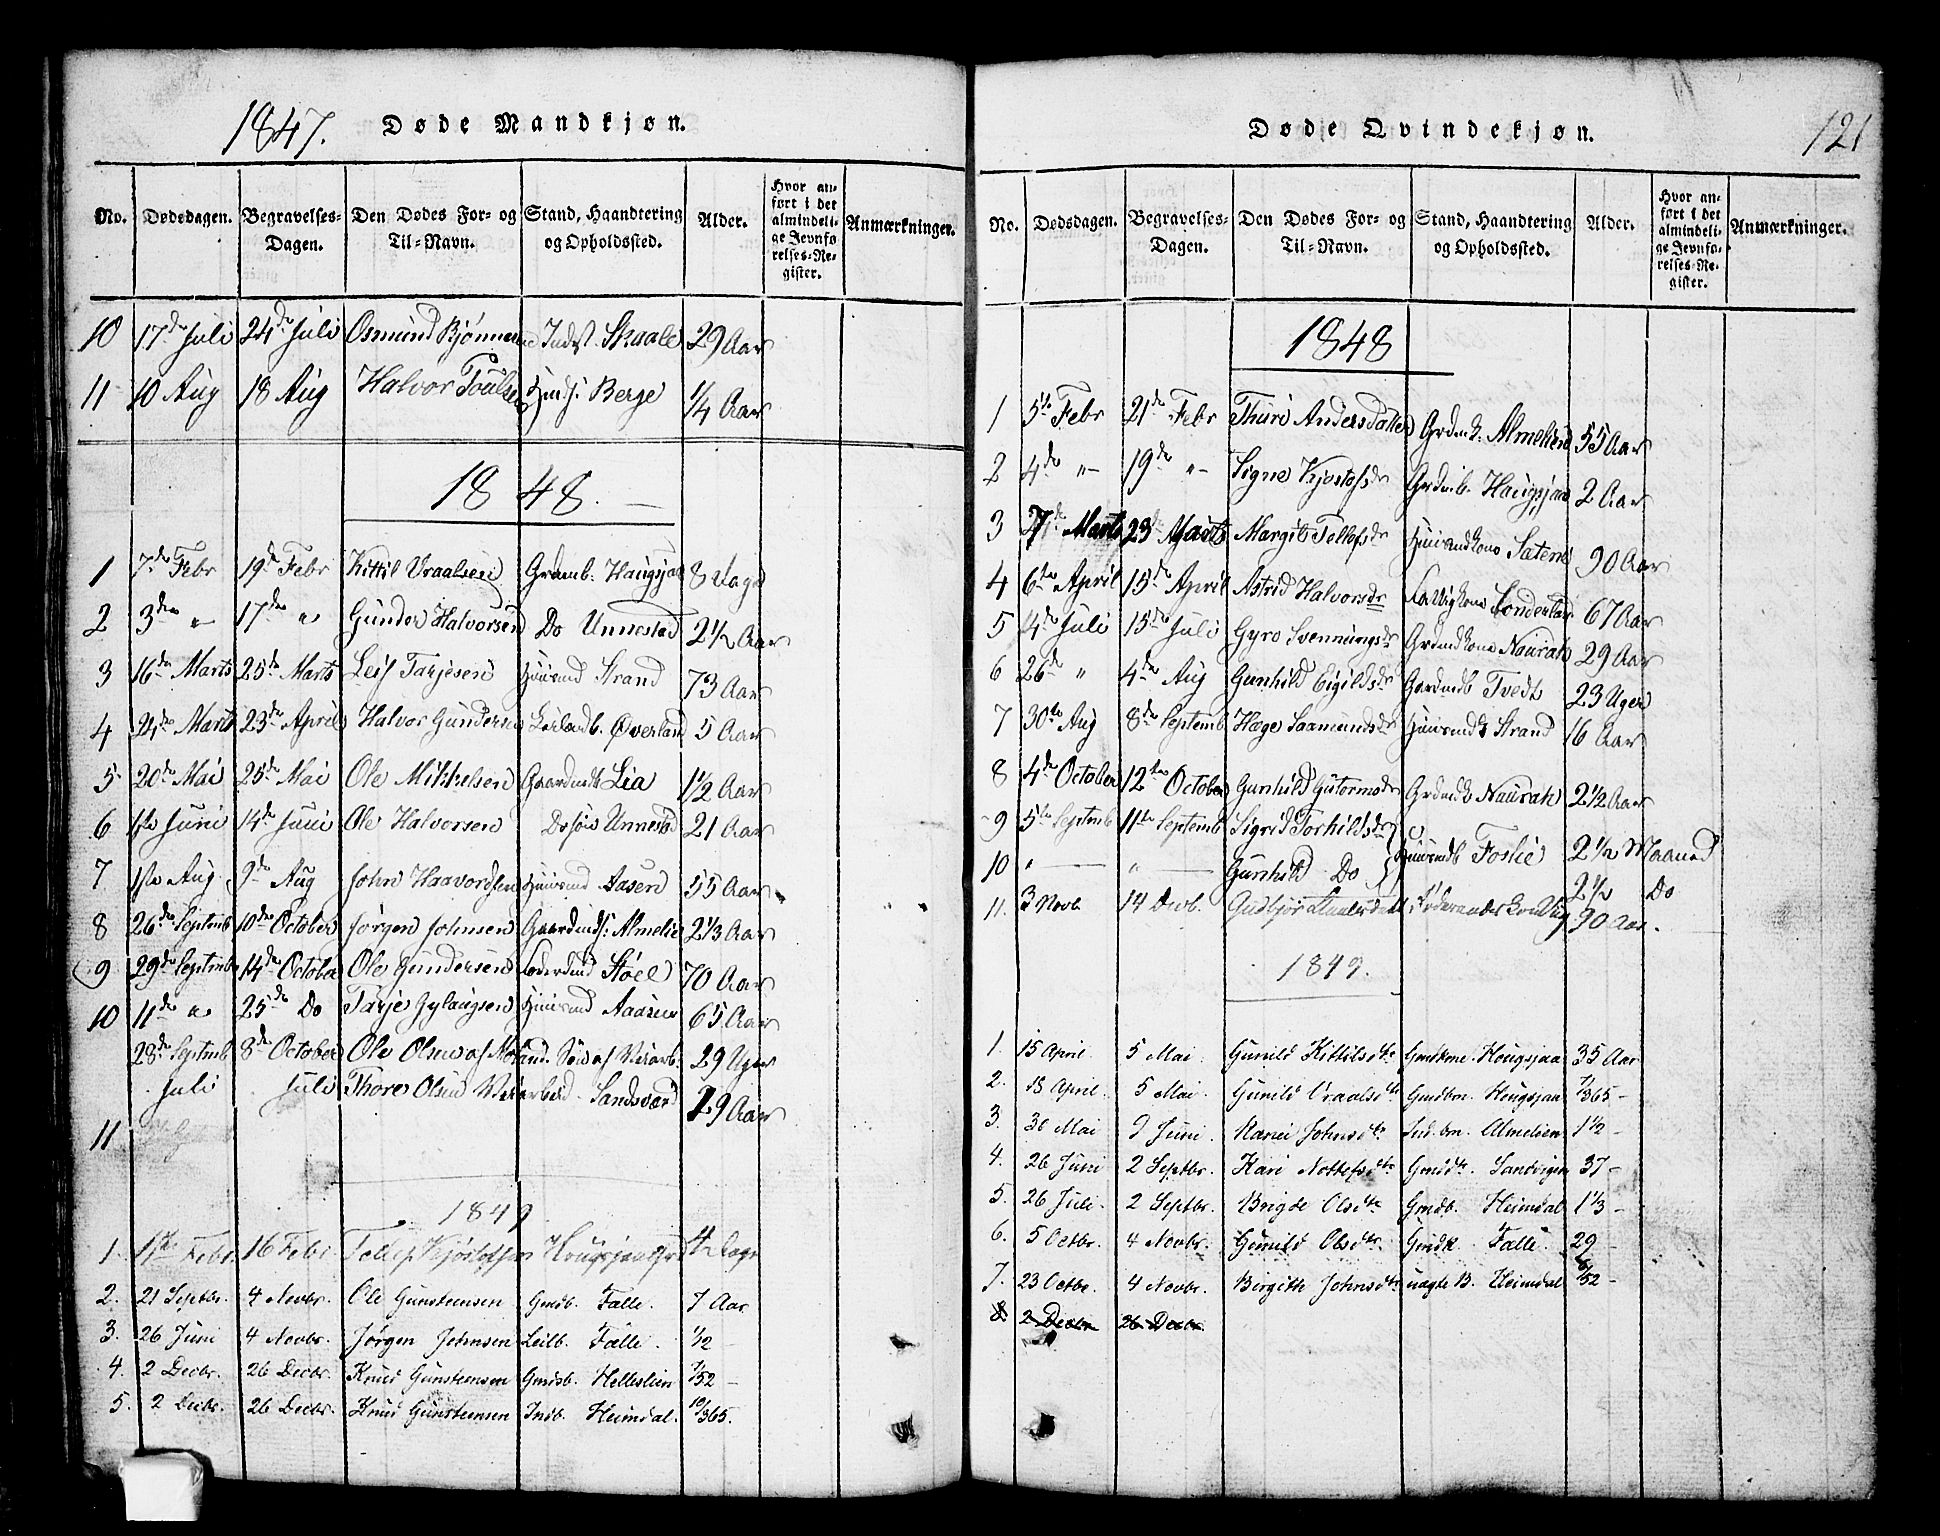 1847. Døde Mandkjøn.
No. Dødsdagen. Begravelses-Dagen. Den Dødes For- og Til-Navn. Stand, Haandtering og Opholdssted. Alder. Hvor anført i det almindelige Jevnførelses-Register. Anmærkninger.
10 17de Juli 24de Juli Osmund Bjønn Indst. Skaale 29 Aar
11 10 Aug 18 Aug Halvor Toulsen Huusf. Berge 1/4 Aar
1848.
1 7de Febr 19de Febr Kittil Vraalsen Grdmb. Haugsjaa 8 Dage
2 3die " 17de " Gunder Halvorsen Do Unnestad 2 1/2 Aar
3 16de Marts 25de Marts Leif Tarjesen Huusmd Strand 73 Aar
4 24de Marts 23de April Halvor Gundersen Leilændb. Øverland 5 Aar
5 20de Mai 25de Mai Ole Mikkelsen Gaardmdb Lia 1 1/2 Aar
6 1ste Juni 14de Juni Ole Halvorsen Do søn Unnestad 21 Aar
7 1ste Aug 9de Aug John Haavordsen Huusmd Aasen 55 Aar
8 26de Septemb 10de October Jørgen Johnsen Gaardmdsf: Almelie 2 1/3 Aar
9 29de Septemb 14de October Ole Gundersen Støel 70 Aar
10 11de " 25de Do Tarje Gylaugsen Huusmd Aasen 65 Aar
28de Septemb 8de October Ole Olsen af land. Søn af 29 Uger
Juli Juli Thore Olsen Sandsværd 29 Aar
11
1849
1. 1ste Febr. 16 Febr Tellef Kjøstolfsen Hougsjaa 4 Dage
2. 21 Septbr. 4 Novbr. Ole Gunsteensen Gmdb. Falle. 7 Aar
3. 26 Juni 4 Novbr. Jørgen Johnsen Leilb. Falle. 1/2 -
4. 2 Decbr. 26 Decbr. Knud Gunsteensen Gmdsb. Helleslien 7/52 -
5. 2 Decbr. 26 Decbr. Knud Gunsteensen Indb. Heimdal. 10/365.
Døde Qvindekjøn. 121
No. Dødsdagen. Begravelses-Dagen. Den Dødes For- og Til-Navn. Stand, Haandtering og Opholdssted. Alder. Hvor anført i det almindelige Jevnførelses-Register. Anmærkninger.
1848
1 5te Febr 21de Febr Thuri Andersdatter Grdmk. Almelien 55 Aar
2 4de " 19de " Signe Kjøstolfsdr Grdmb. Haugsjaa 2 Aar
3 Marts 23de Marts Margit Tellefsdr Huusmdkone Sateren 90 Aar
4 6te April 15de April Astrid Halvorsdr Sonderland 67 Aar
5 4de Juli 15de Juli Gyro Svenningsdr Grdmdkone Naurak 29 Aar
6 26de " 4de Aug Gunhild Eigildsdr Gardmdb Tvedt 23 Uger
7 30te Aug 8de Septemb Hæge Saamundsdr Huusmdb Strand 16 Aar
8 4de October 12te October Gunhild Gutormsdr Grdmdb Naurak 2 1/2 Aar
9 5te Septemb 11te Septemb Sigrid Torkildsdr Huusmdb Foslie 2 1/2 Maaned
10 " " Gunhild Do 2 1/2 Do
11. 3 Novb. 14 Decb. Gudbjør 90 Aar.
1849.
1. 15 April 5 Mai Gunild Kittilsdtr Gmdkne. Hougsjaa 35 Aar
2. 18 April 5 Mai Gunild Vraalsdtr Gmdbn. Hougsjaa 7/365 -
3. 30 Mai 9 Juni Ranei Johnsdtr Ind.bn. Almelien 1 1/2 -
4. 26 Juni 2 Septbr. Kari Nottofsdtr Gmddtr. Sandvigen 37 -
5. 26 Juli. 2 Septbr. Brigde Olsdtr Gmdb. Heimdal 1 1/3 -
6. 5 Octbr. 4 Novbr. Gunild Olsdtr. Gmdk. Falle. 29 -
7. 23 Octbr. 4 Novbr. Birgitte Johnsdtr uægte B. Heimdal /52 -
8 2 Decbr. 26 Decbr.